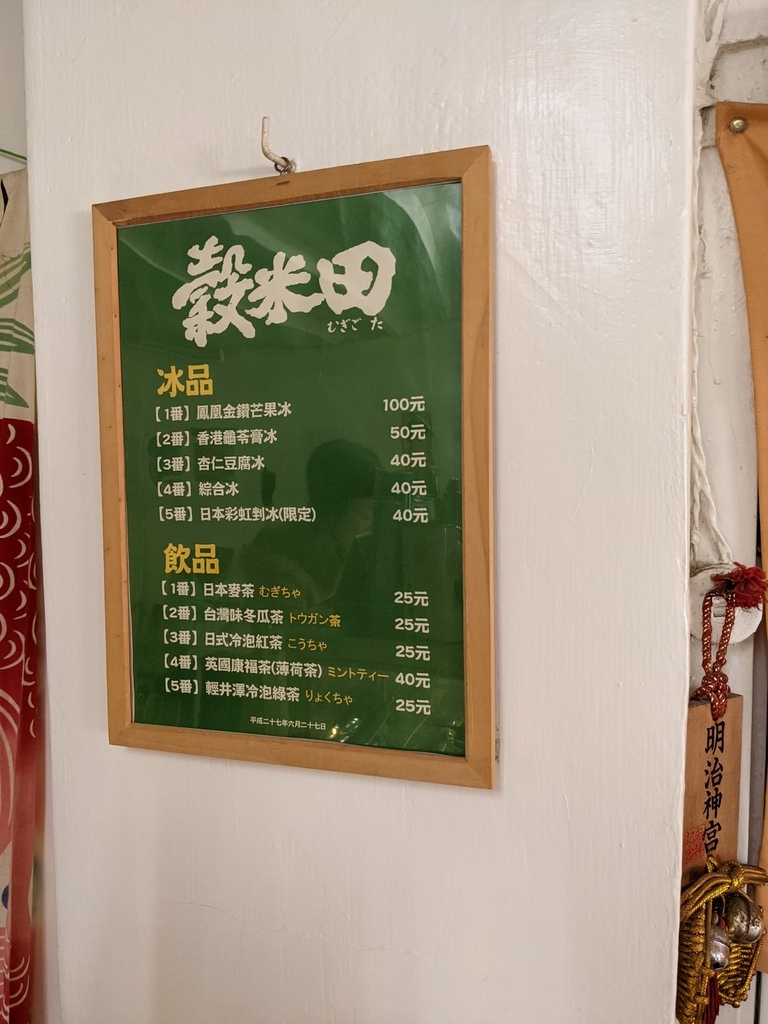 穀米田
むぎごた
冰品
【1番】鳳凰金鑽芒果冰 100元
【2番】香港龜苓膏冰 50元
【3番】杏仁豆腐冰 40元
【4番】綜合冰 40元
【5番】日本彩虹剉冰(限定) 40元
飲品
【1番】日本麥茶 むぎちゃ 25元
【2番】台灣味冬瓜茶 トウガン茶 25元
【3番】日式冷泡紅茶 こうちゃ 25元
【4番】英國康福茶(薄荷茶) ミントティー 40元
【5番】輕井澤冷泡綠茶 りょくちゃ 25元
平成二十七年六月二十七日
明治神宮